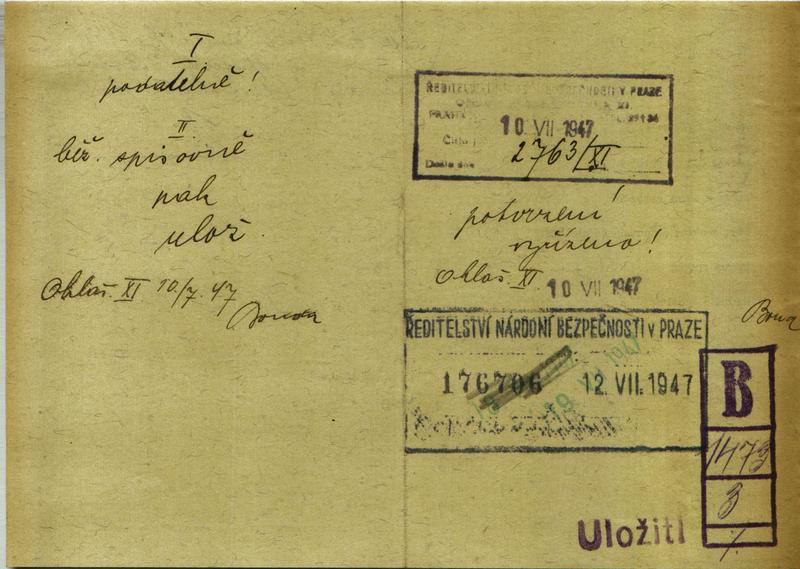 I
povatelně!
II
běž. spisovně
pak
ulož.
Ohlaš. XI 10/7. 47
ŘEDITELSTVÍ BEZPEČNOSTI V PRAZE
10 VII 1947
Číslo: 2763/XI
Došlo dne
potvrzení
vyřízeno!
Ohlaš. XI. 10 VII 1947
ŘEDITELSTVÍ NÁRODNÍ BEZPEČNOSTI v PRAZE
176706 12. VII. 1947
B
1473
3
Uložiti